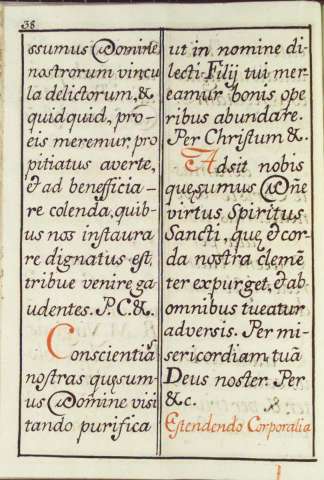 38
ssumus Domine
nostrorum vincu
la delictorum, &
quidquid, pro-
eis meremur, pro
pitiatus averte,
& ad benefficia-
re colenda, quib-
us nos instaura
re dignatus est,
tribue venire ga-
udentes. P. C. &.
Conscientias
nostras quęsum-
us Domine visi
tando purifica
ut in nomine di-
lecti Filij tui mer-
eamur bonis ope
ribus abundare.
Per Christum &.
Adsit nobis
quęsumus Dñe
virtus Spiritus
Sancti, quę & cor-
da nostra clemẽ
ter expurget, & ab
omnibus tueatur
adversis. Per mi-
sericordiam tuã
Deus noster. Per
&c.
Estendendo Corporalia